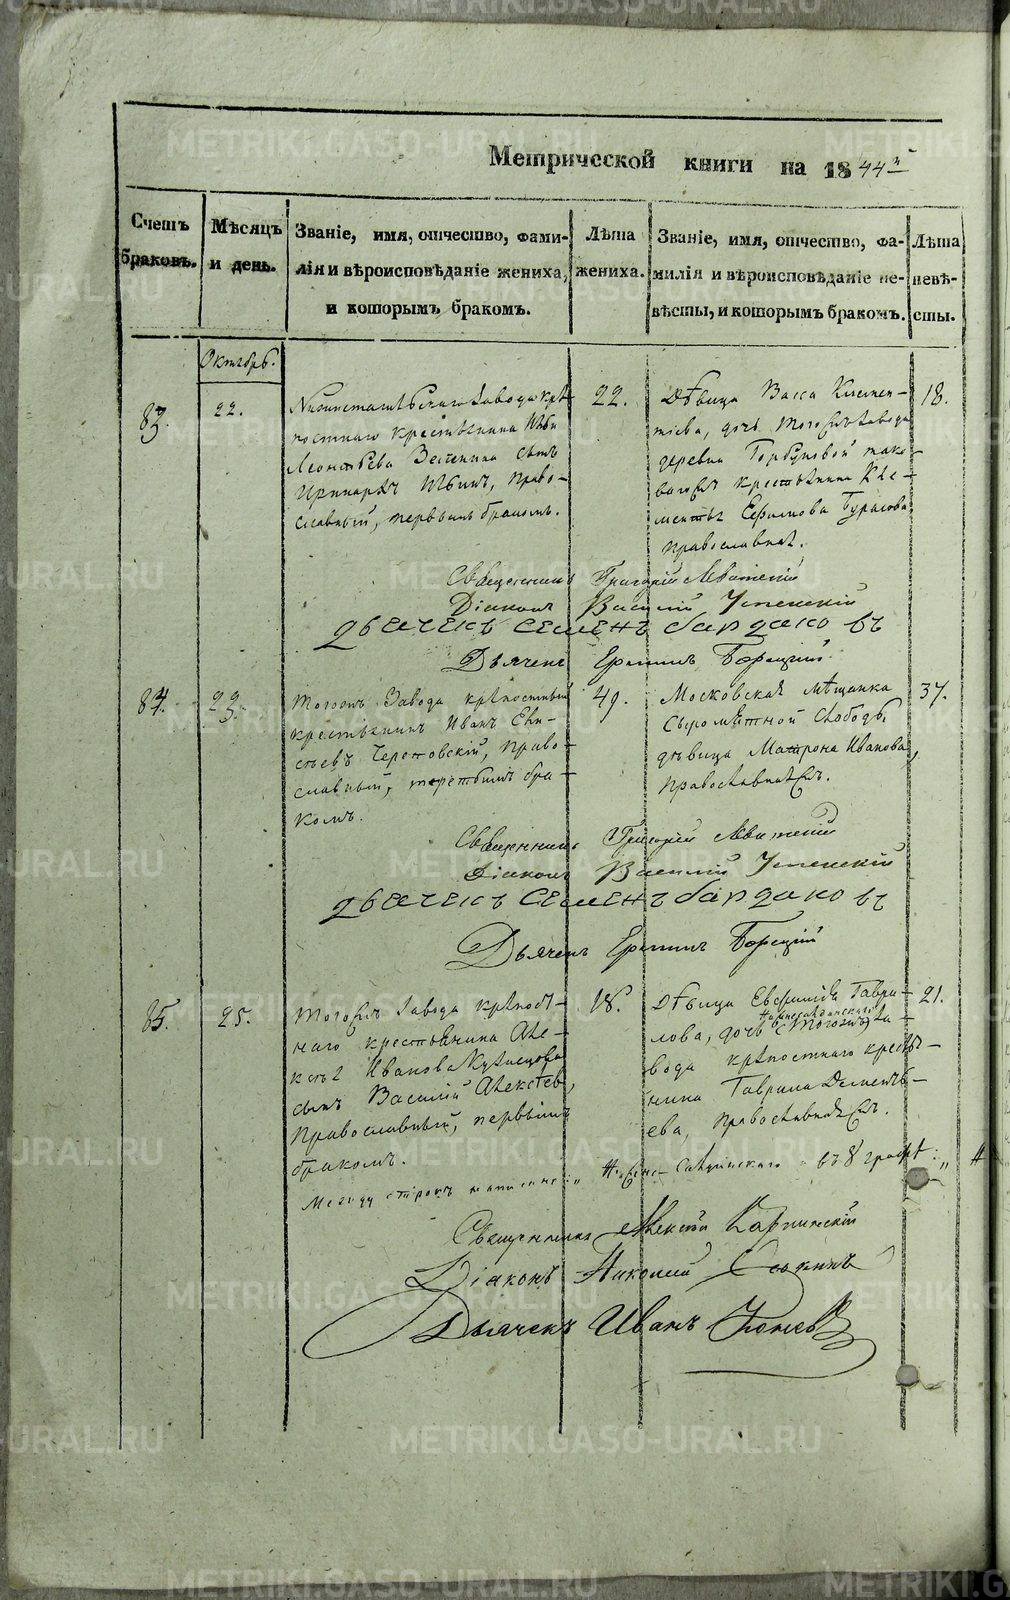 Метрической книги на 1844й
Счетъ браковъ.
Мѣсяцъ и день.
Званіе, имя, отчество, фами-
лія и вѣроисповѣданіе жениха,
и которымъ бракомъ.
Лѣта
жениха.
Званіе, имя, отчество, фа-
милія и вѣроисповѣданіе не-
вѣсты, и которымъ бракомъ.
Лѣта
невѣ-
сты.
Октябрь.
83.
22.
Нижнетагильскаго завода крѣ-
постнаго крестьянина
Леонтьева сынъ
право-
славный, первымъ бракомъ.
22.
Дѣвица Васса Клемен-
тьева, дочь тогожъ завода
деревни Горбуновой тако-
вагожъ крестьянина Кле-
ментья Ефимова Бурасова
православная.
18.
Священникъ Григорій Левитскій
Діаконъ Василій Успенскій
дьячекъ Семенъ бардаковъ
Дьячекъ Борецкій
84.
23.
Тогожъ завода крѣпостный
крестьянинъ Иванъ Ев-
сѣевъ право-
славный, третьимъ бра-
комъ.
49.
Московская мѣщанка
Сыромятной слободы
дѣвица Матрона Иванова,
православная
37.
Священникъ Григорій Левитскій
Діаконъ Василій Успенскій
дьячекъ Семенъ бардаковъ
Дьячекъ Борецкій
85.
25.
Тогожъ завода крѣпост-
наго крестьянина Але-
ксѣя Иванова Кузнецова
сынъ Василій Алексѣевъ,
православный, первымъ
бракомъ.
18.
Дѣвица Гаври-
лова, дочь тогожъ за-
вода крѣпостнаго крестья-
нина Гаврила Дементь-
ева, православная
21.
Между строкъ написано: въ 8 графѣ
Священникъ Алексій Карпинскій
Діаконъ Николай
Дьячекъ Иванъ
METRIKI.GASO-URAL.RU